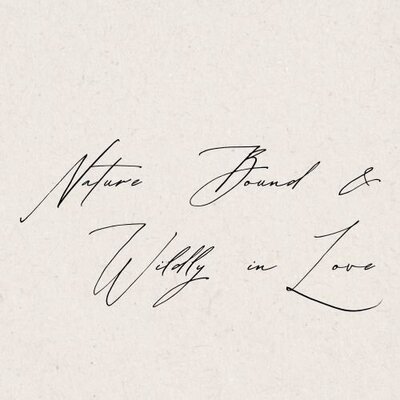 Nature Bound &
Wildly in Love